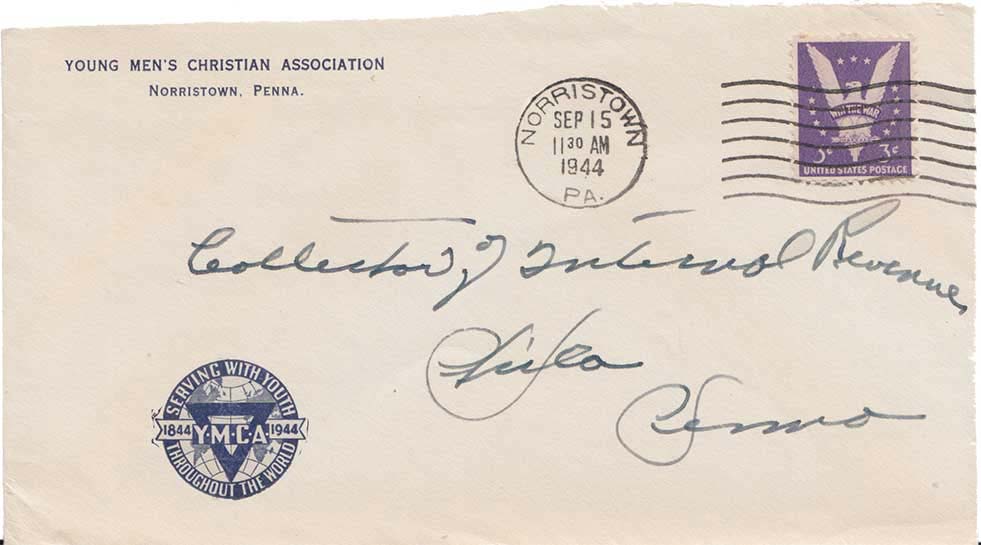 YOUNG MEN'S CHRISTIAN ASSOCIATION
NORRISTOWN, PENNA.
NORRISTOWN
SEP 15
11 30 AM
1944
PA.
WIN THE WAR
3¢ 3¢
UNITED STATES POSTAGE
Collector of Internal Revenue,
Phila
Penna
SERVING WITH YOUTH
1844 Y·M·C·A 1944
THROUGHOUT THE WORLD